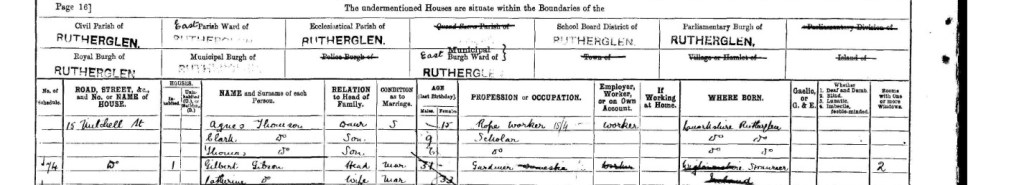 Page 16] The undermentioned Houses are situate within the Boundaries of the
Civil Parish of East Parish Ward of Ecclesiastical Parish of Quoad Sacra Parish of School Board District of Parliamentary Burgh of Parliamentary Division of
RUTHERGLEN. RUTHERGLEN RUTHERGLEN. RUTHERGLEN RUTHERGLEN.
Royal Burgh of Municipal Burgh of Police Burgh of East Municipal Burgh Ward of Town of Village or Hamlet of Island of
RUTHERGLEN RUTHERGLE
No. of Schedule. ROAD, STREET, &c., and No. or NAME of HOUSE. HOUSES. Inhabited. NAME and Surname of each Person. RELATION to Head of Family. CONDITION as to Marriage. AGE (last Birthday). Males. Females. PROFESSION or OCCUPATION. Employer, Worker, or on Own Account. If Working at Home. WHERE BORN. Gaelic, or G. & E. Whether 1. Deaf and Dumb 2. Blind. 3. Lunatic. 4. Imbecile, feeble-minded. Rooms with One or more Windows.
15 Mitchell St Agnes Thomson Daur S 15 Rope Worker 15/4 Worker Lanarkshire Rutherglen
Clark Do Son 9 Scholar Do Do
Thomas Do Son Do Do Do
174 Do 1 Gilbert Gibson Head Mar 37 Gardener Domestic Worker Stranraer 2
Catherine Do Wife Mar 33 Ireland